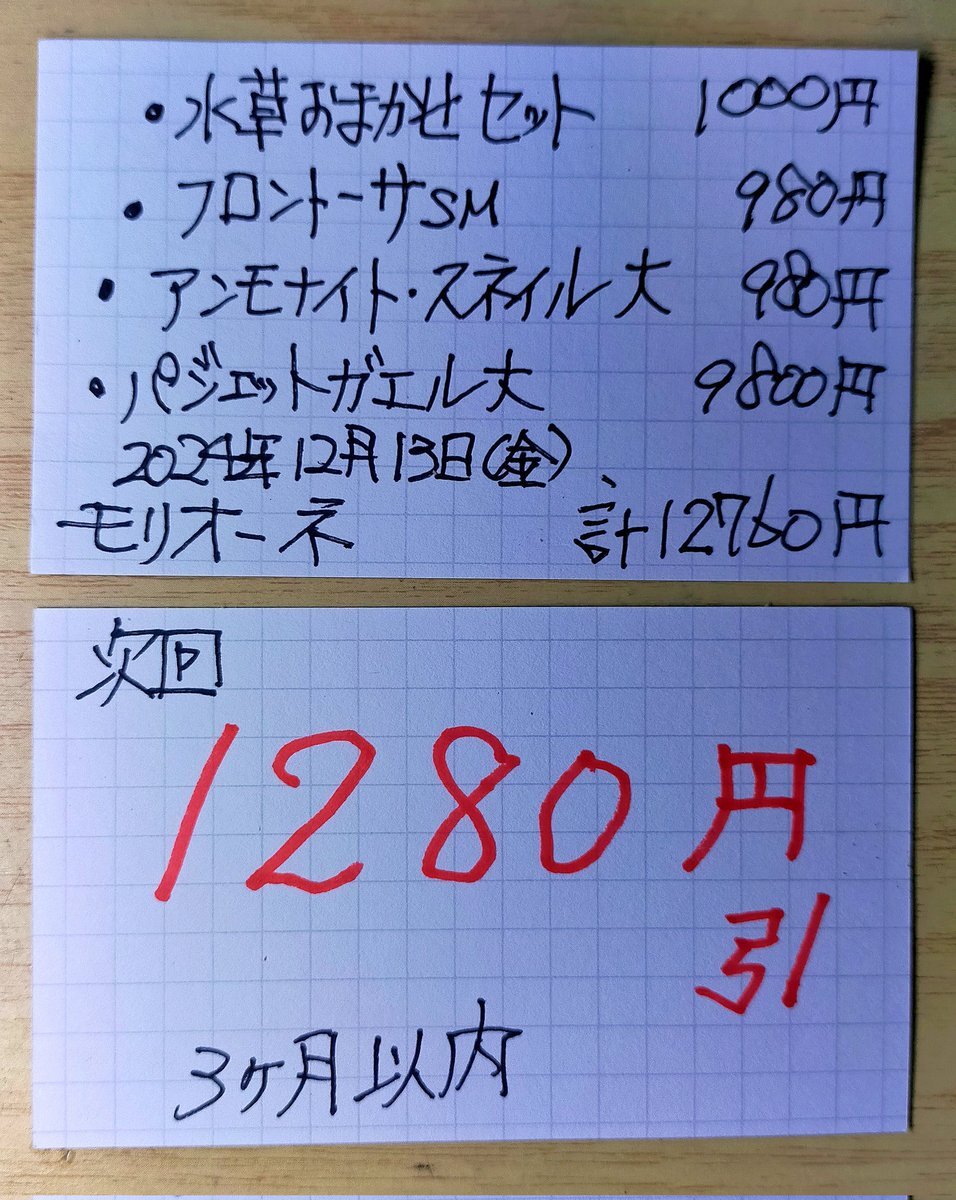 ・水草おまかせセット 1000円
・フロントーサSM 980円
・アンモナイト・スネイル大 980円
・パジェットガエル大 9800円
2024年12月13日(金)
モリオーネ 計12760円
次回
1280円
引
3ヶ月以内